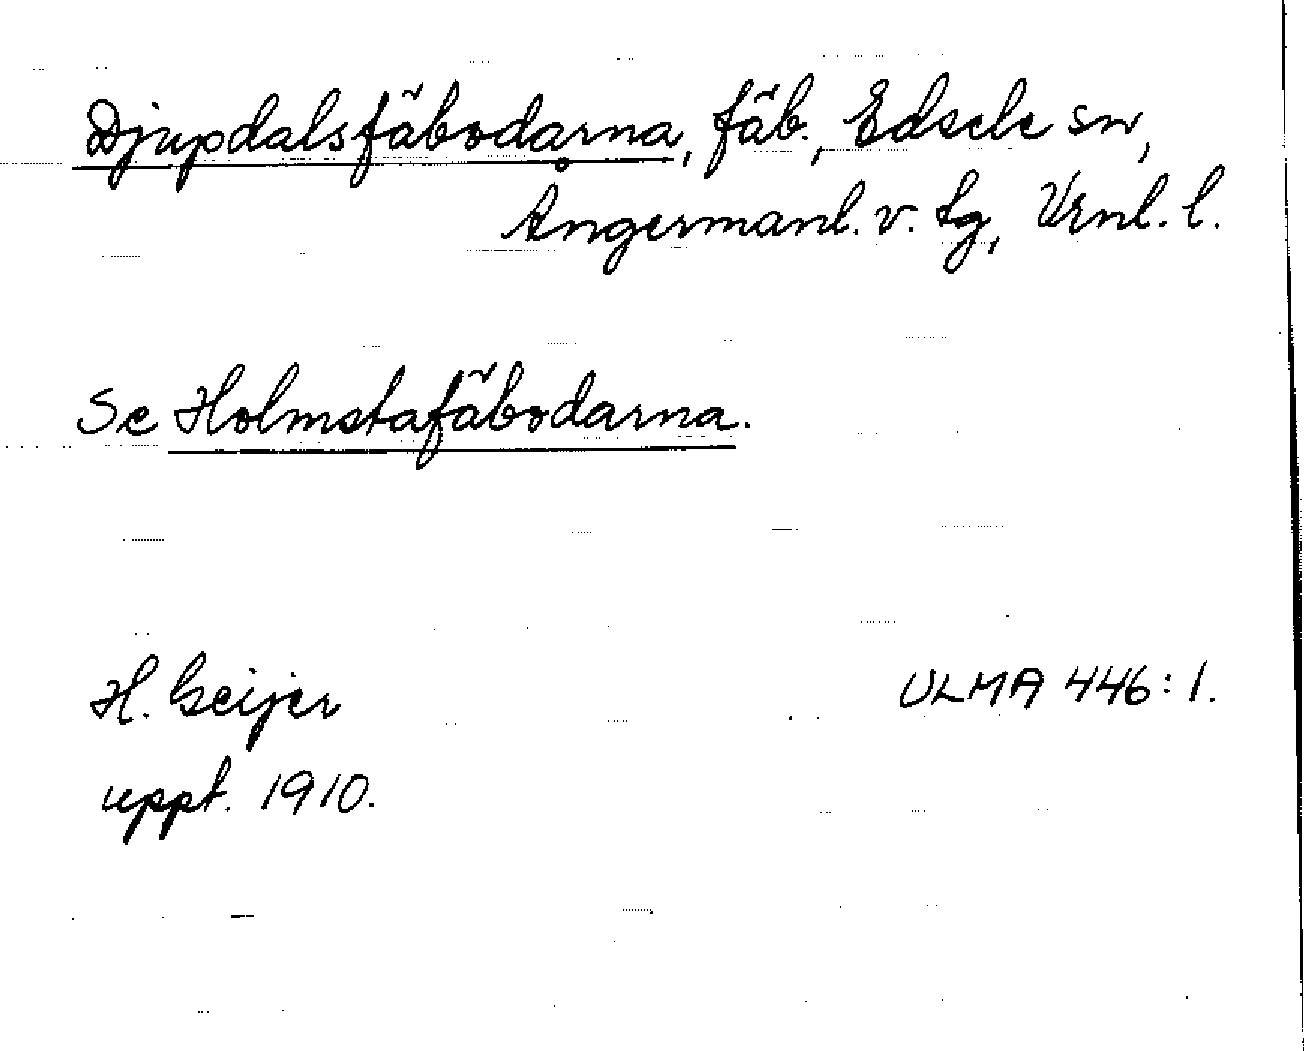 Djupdalsfäbodarna, fäb., Edsele sn,
Ångermanl. v. tg, Vrnl. l.
Se Holmstafäbodarna.
H. Geijer
ULMA 446:1.
uppt. 1910.